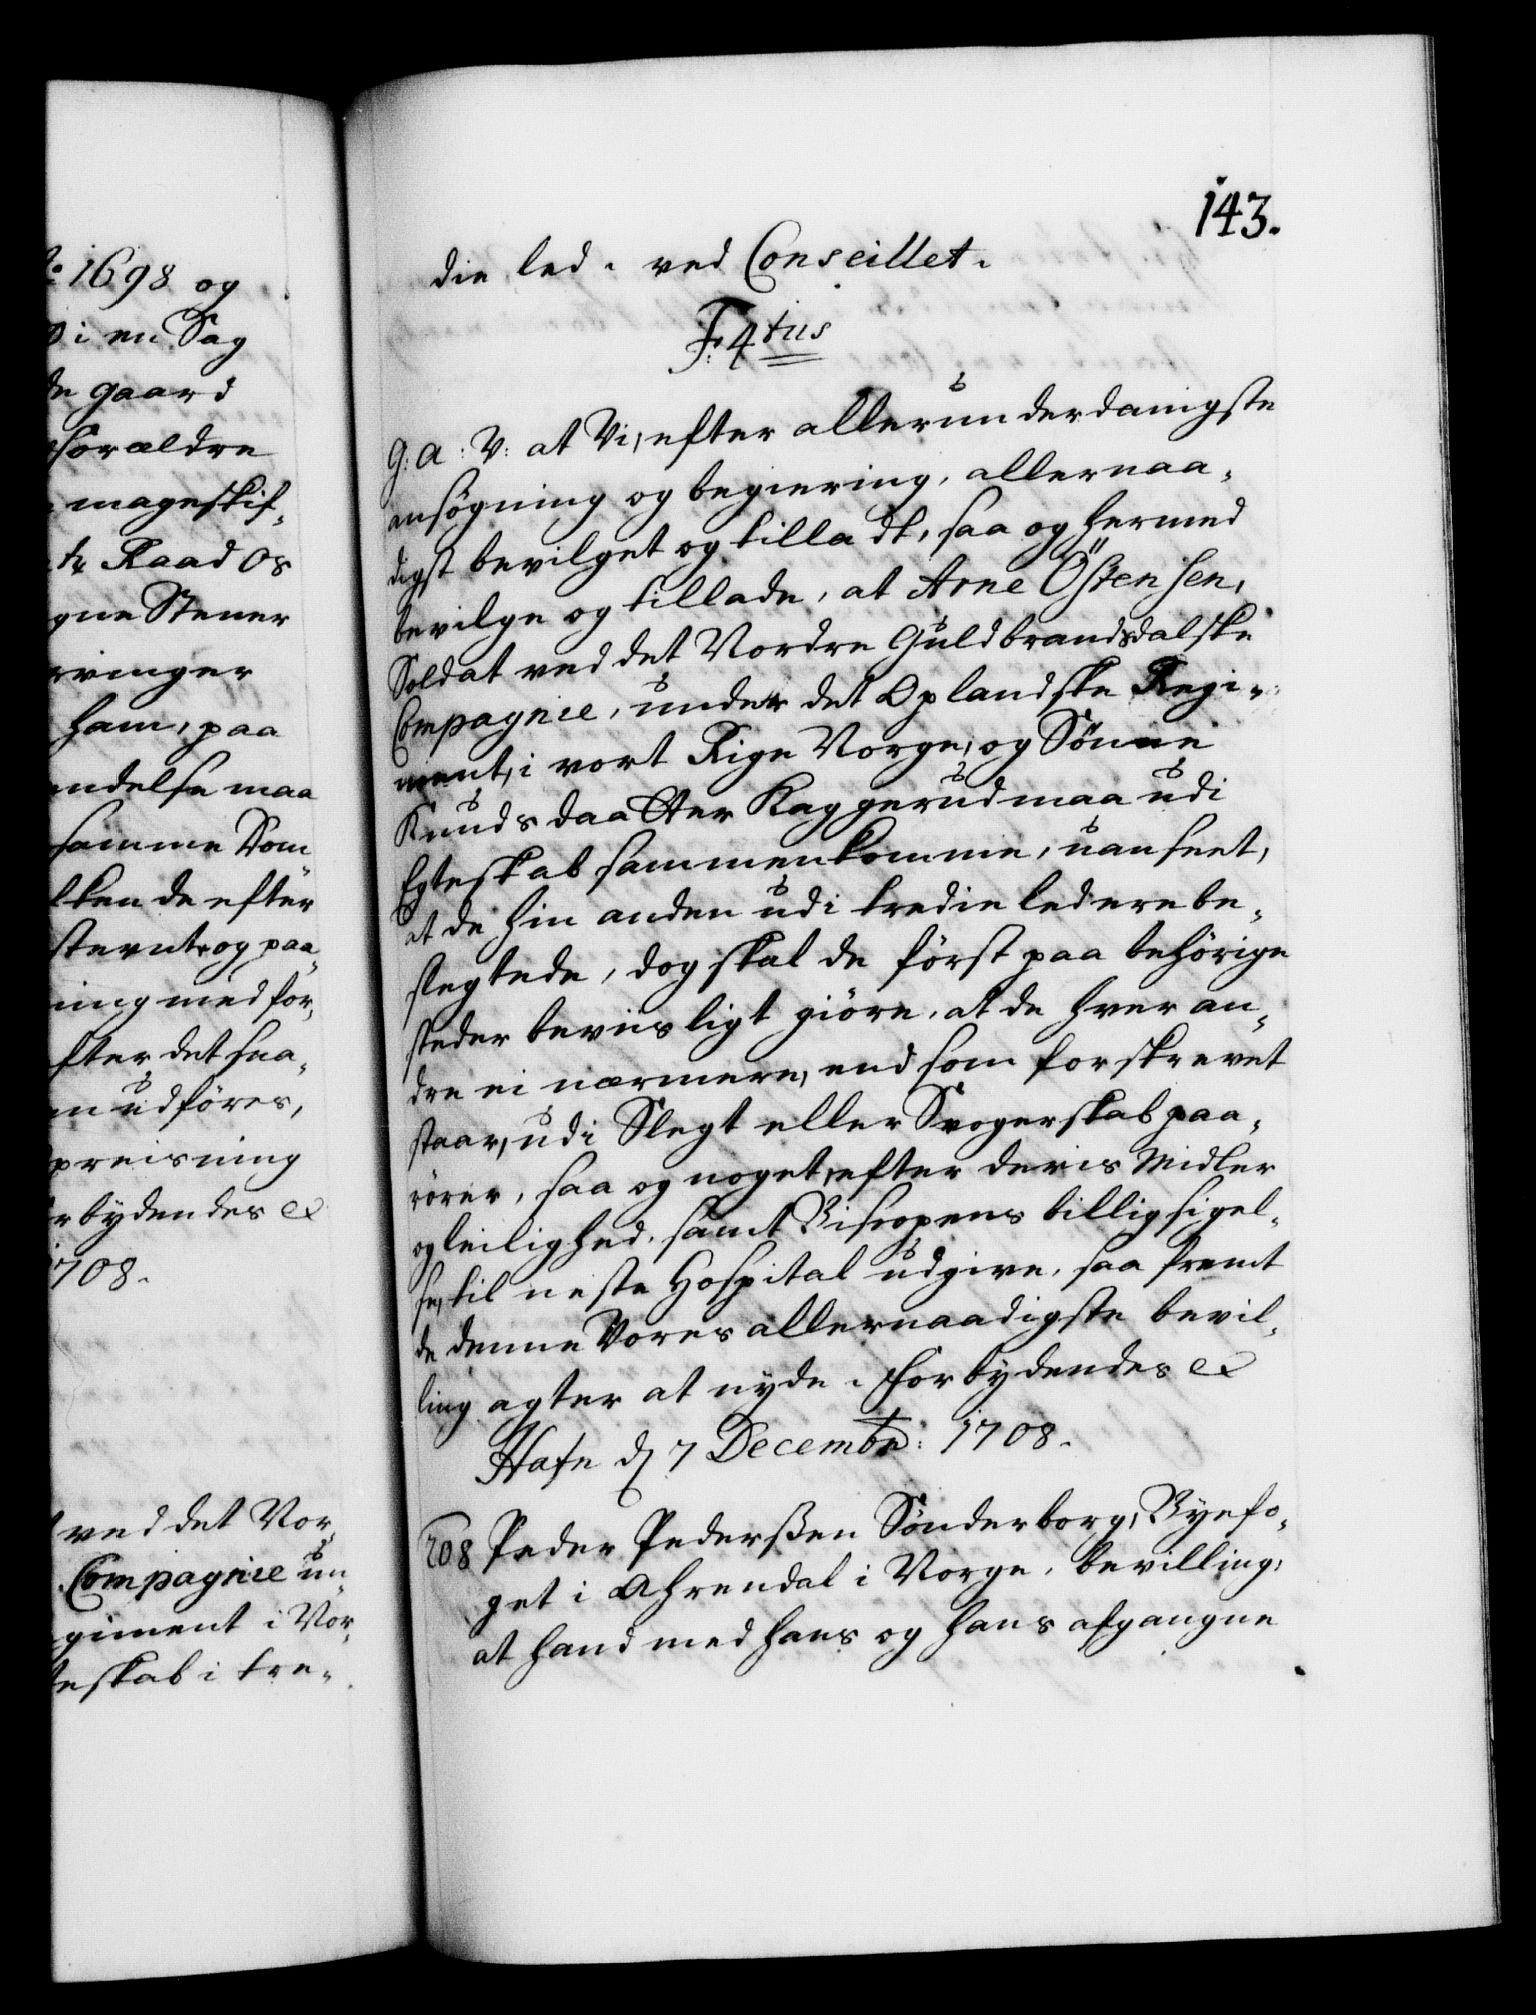 o: 1698 og
i en Sag
de gaard
forældre
mageskif„
Raad Os
gne Stener
vinger
ham, paa
endelse maa
samme Som
kende efter
stevnt og paa„
ning med for„
fter det saa„
n udføres,
preisning
rbydendes &
1708.
ved det Nor„
Compagnie un„
giment i Nor„
teskab i tre„
143.
die led. ved Conseillet.
F: 4tus
G: A: V: at Vi, efter allerunderdanigste
ansøgning og begiering, allernaa„
digst bevilget og tilladt, saa og hermed
bevilge og tillade, at Arne Östensen,
Soldat ved det Nordre Guldbrandsdalske
Compagnie, under det Oplandske Regi„
ment, i vort Rige Norge, og Sönne
Knuds daatter Kaggerud maa udi
Egteskab sammenkomme, uanseet,
at de hin anden udi tredie led ere be„
slegtede, dog skal de först paa behörige
steder beviisligt giöre, at de hver an„
dre ei nærmere, end som forskrevet
staar, udi Slegt eller Svogerskab paa„
rörer, saa og noget, efter deris Midler
og leilighed, samt Biscopens billig sigel„
se, til neste Hospital udgive, saa fremt
de denne Vores allernaadigste bevil„
ling agter at nyde. Forbydendes &
Hafn d 7 Decembr: 1708.
208 Peder Pederssen Sönderborg, Byefo„
get i Ahrendal i Norge, bevilling,
at hand med hans og hans afgangne